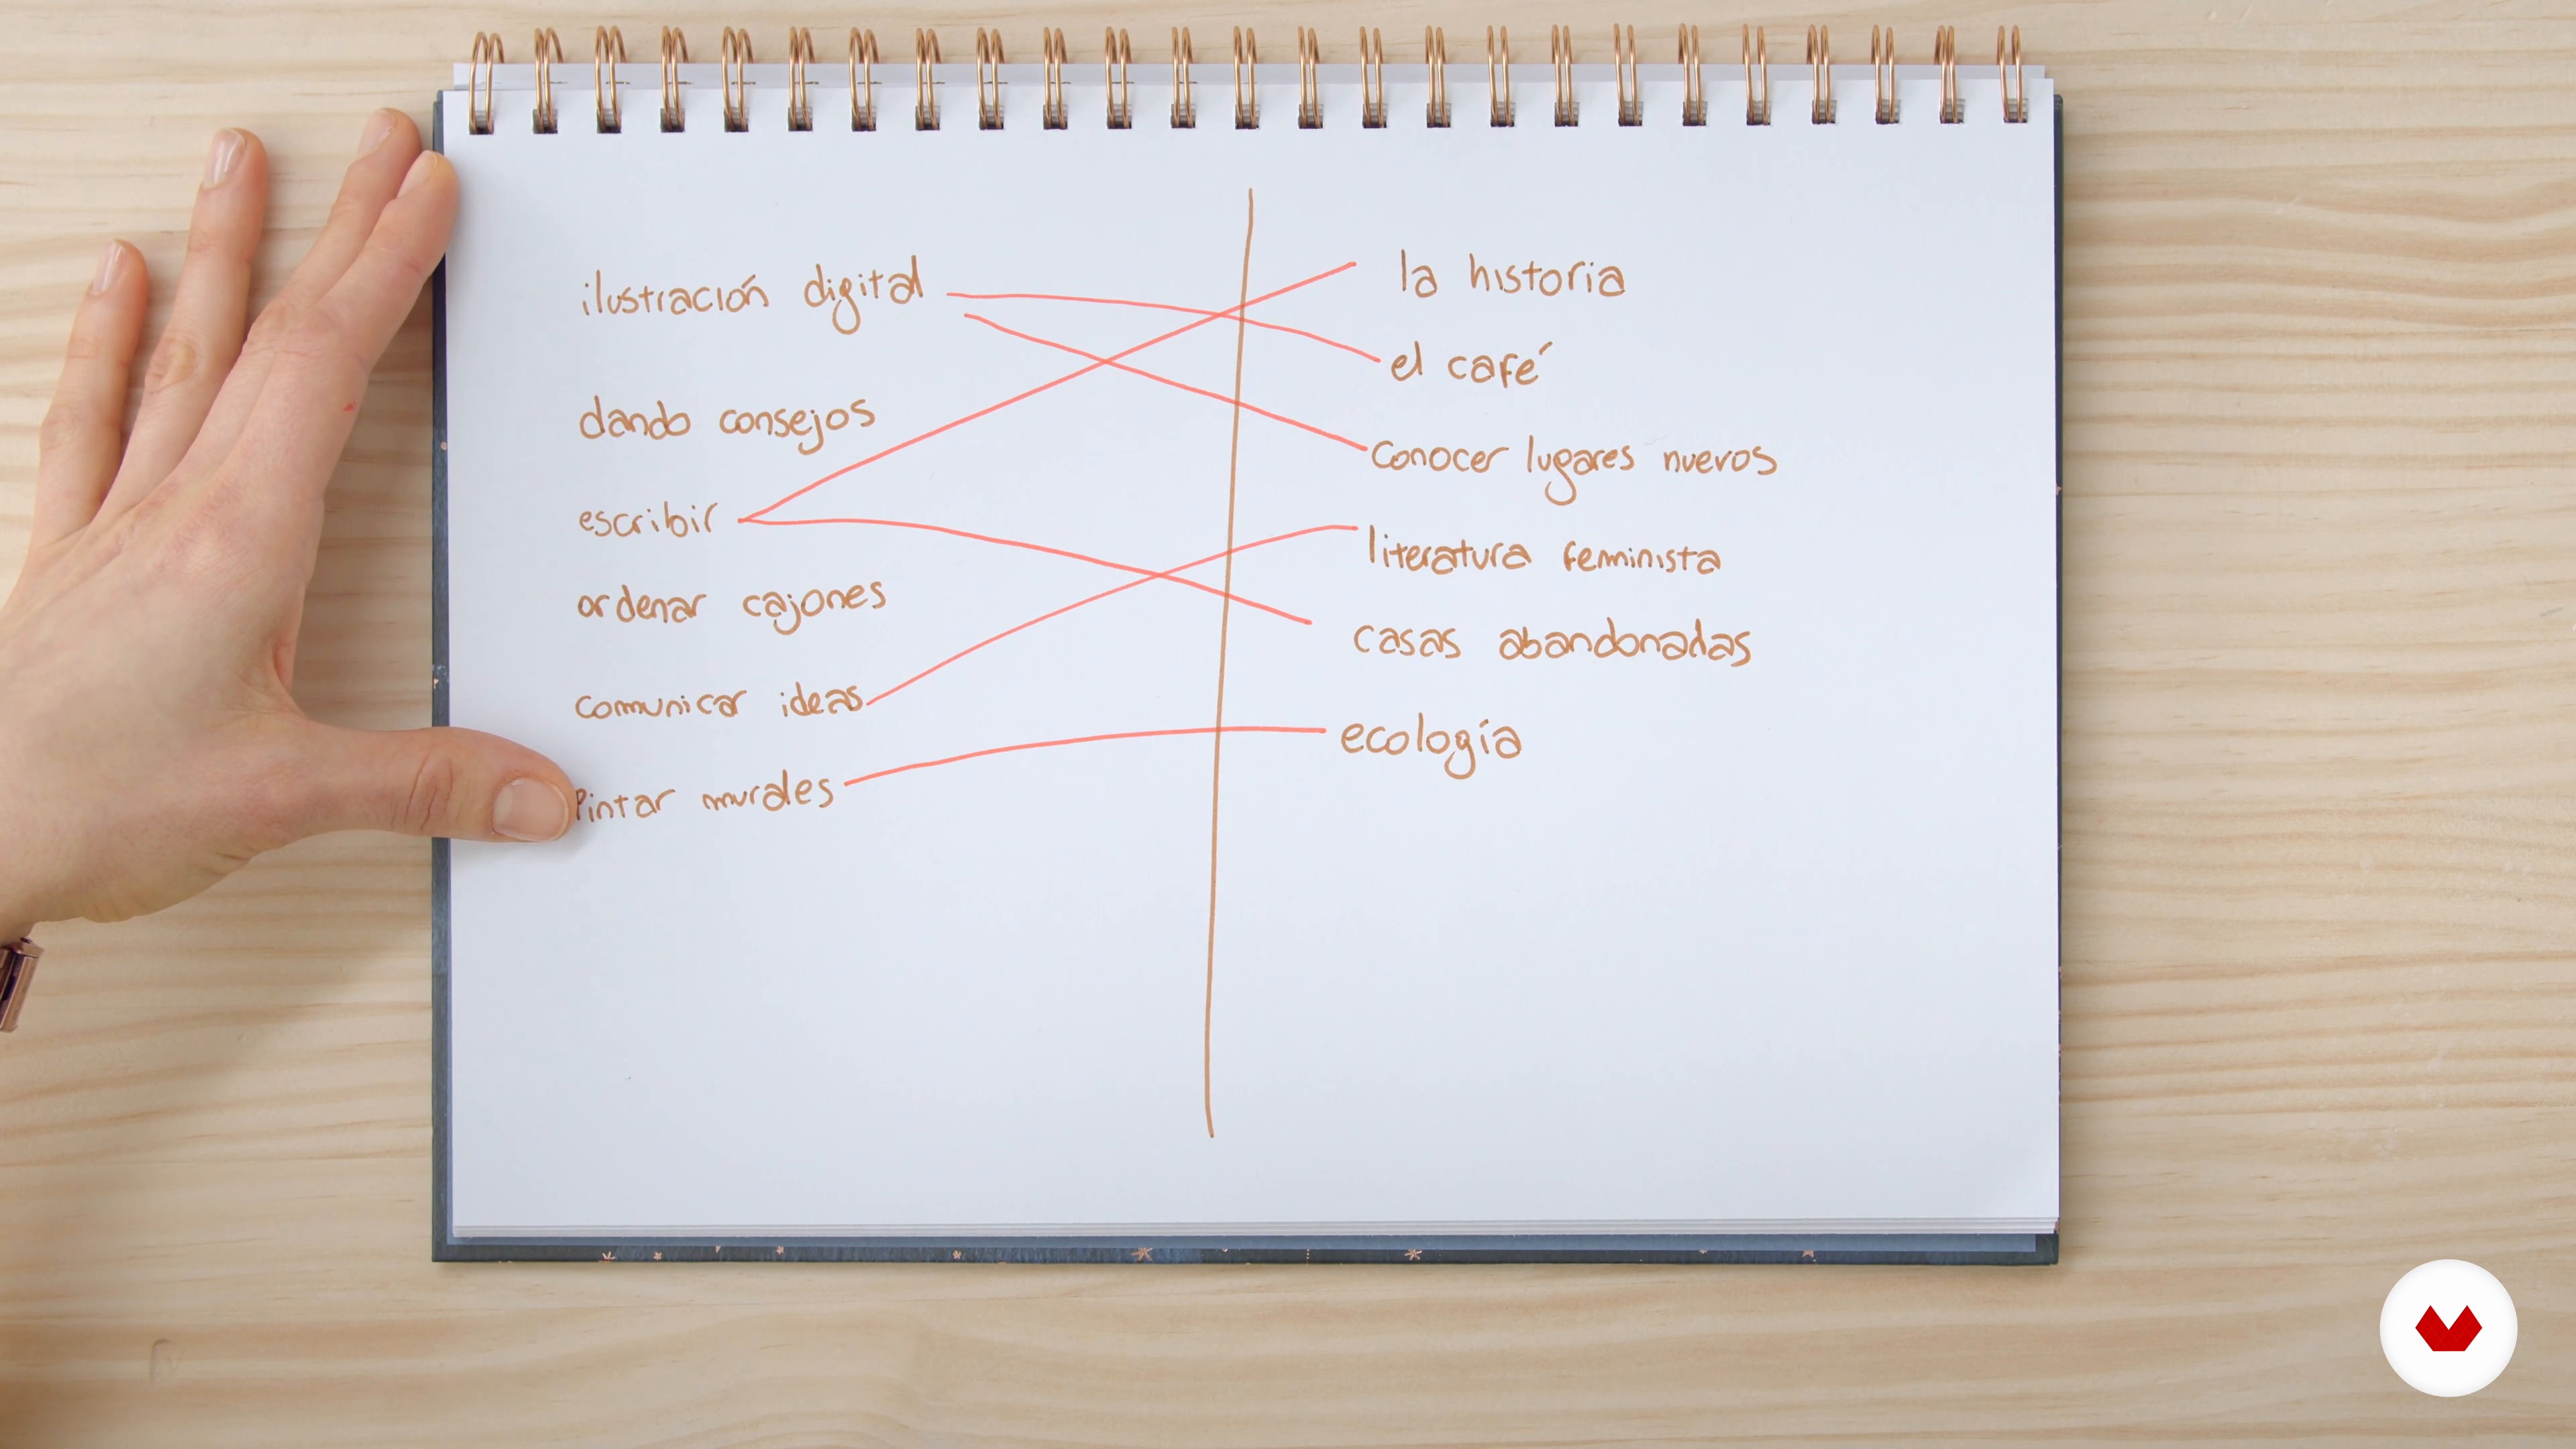 ilustración digital
dando consejos
escribir
ordenar cajones
comunicar ideas
Pintar murales
la historia
el café
Conocer lugares nuevos
literatura feminista
casas abandonadas
ecología